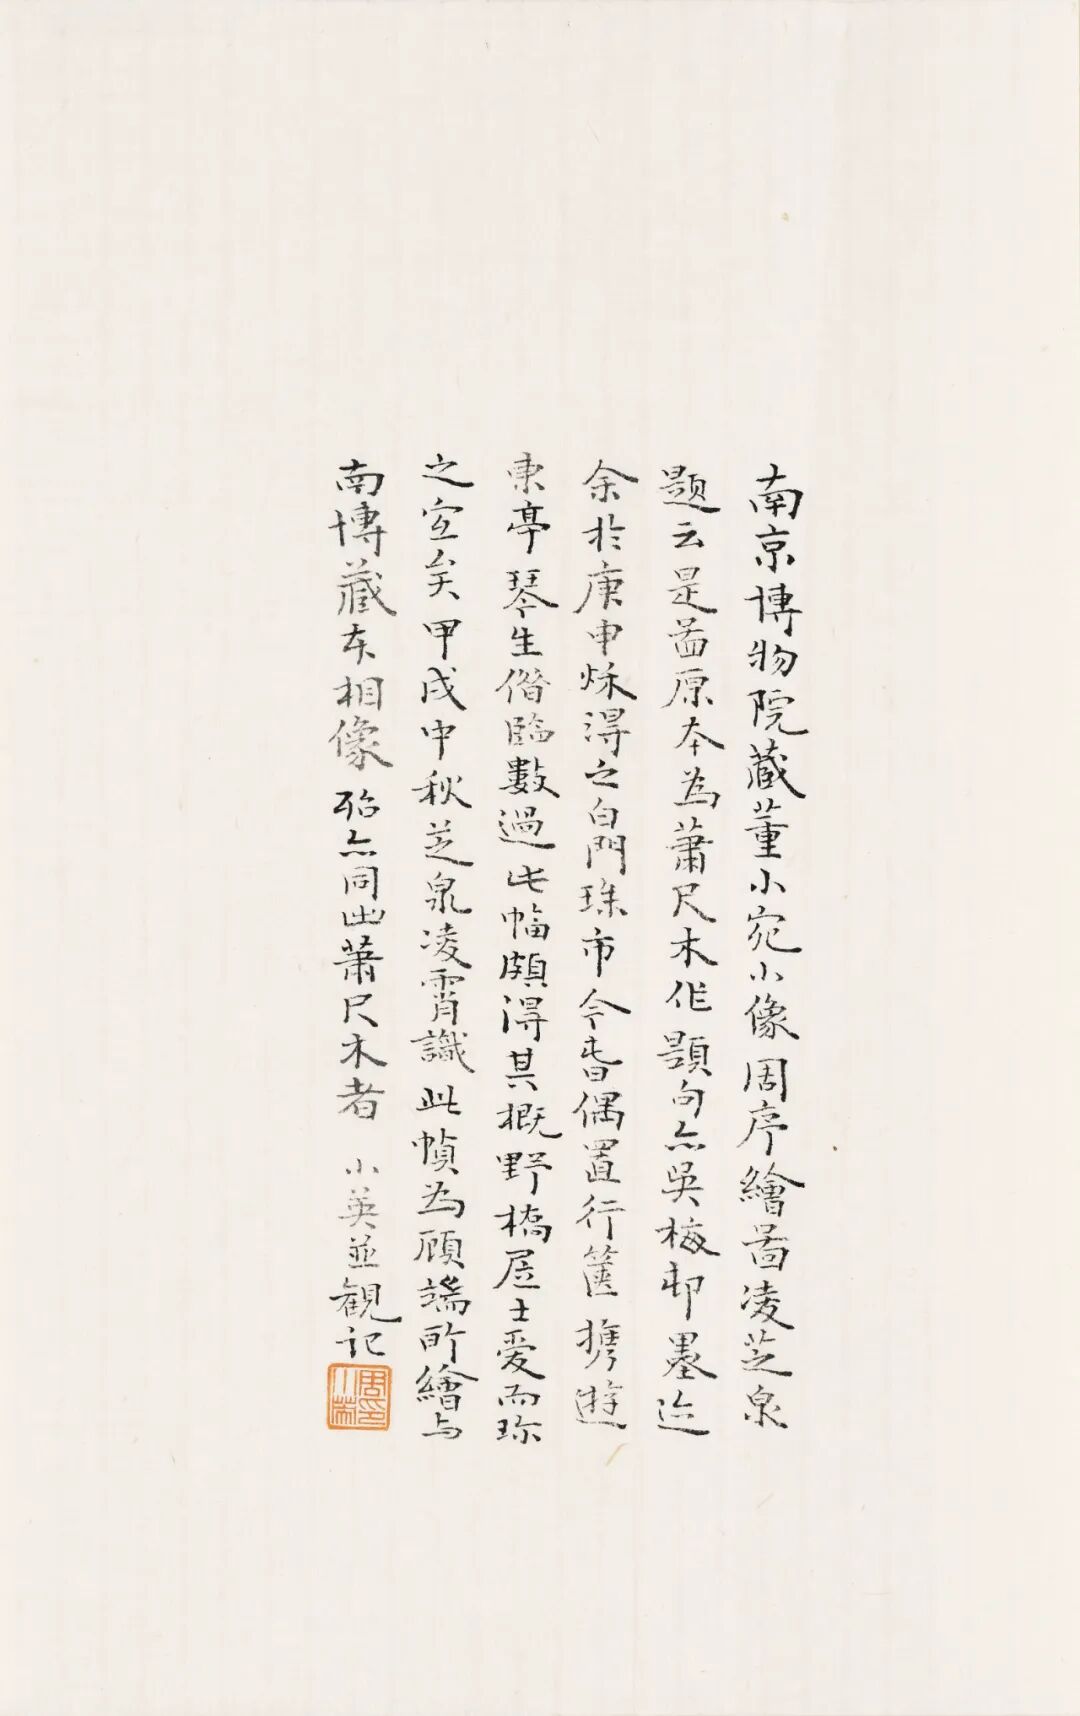 南京博物院藏董小宛小像周序繪畵凌芝泉
题云是啚原本為蕭尺木作題句亦吳梅邨墨迹
余於庚申炑淂之白門珠市今春偶置行箧携遊
東亭琴生偕臨數過此幅頗淂其概野橋居士爱而珎
之宜矣甲戌中秋芝泉凌霄識此幀為顾端所繪与
南博藏本相像殆亦同出萧尺木者 小英並観记